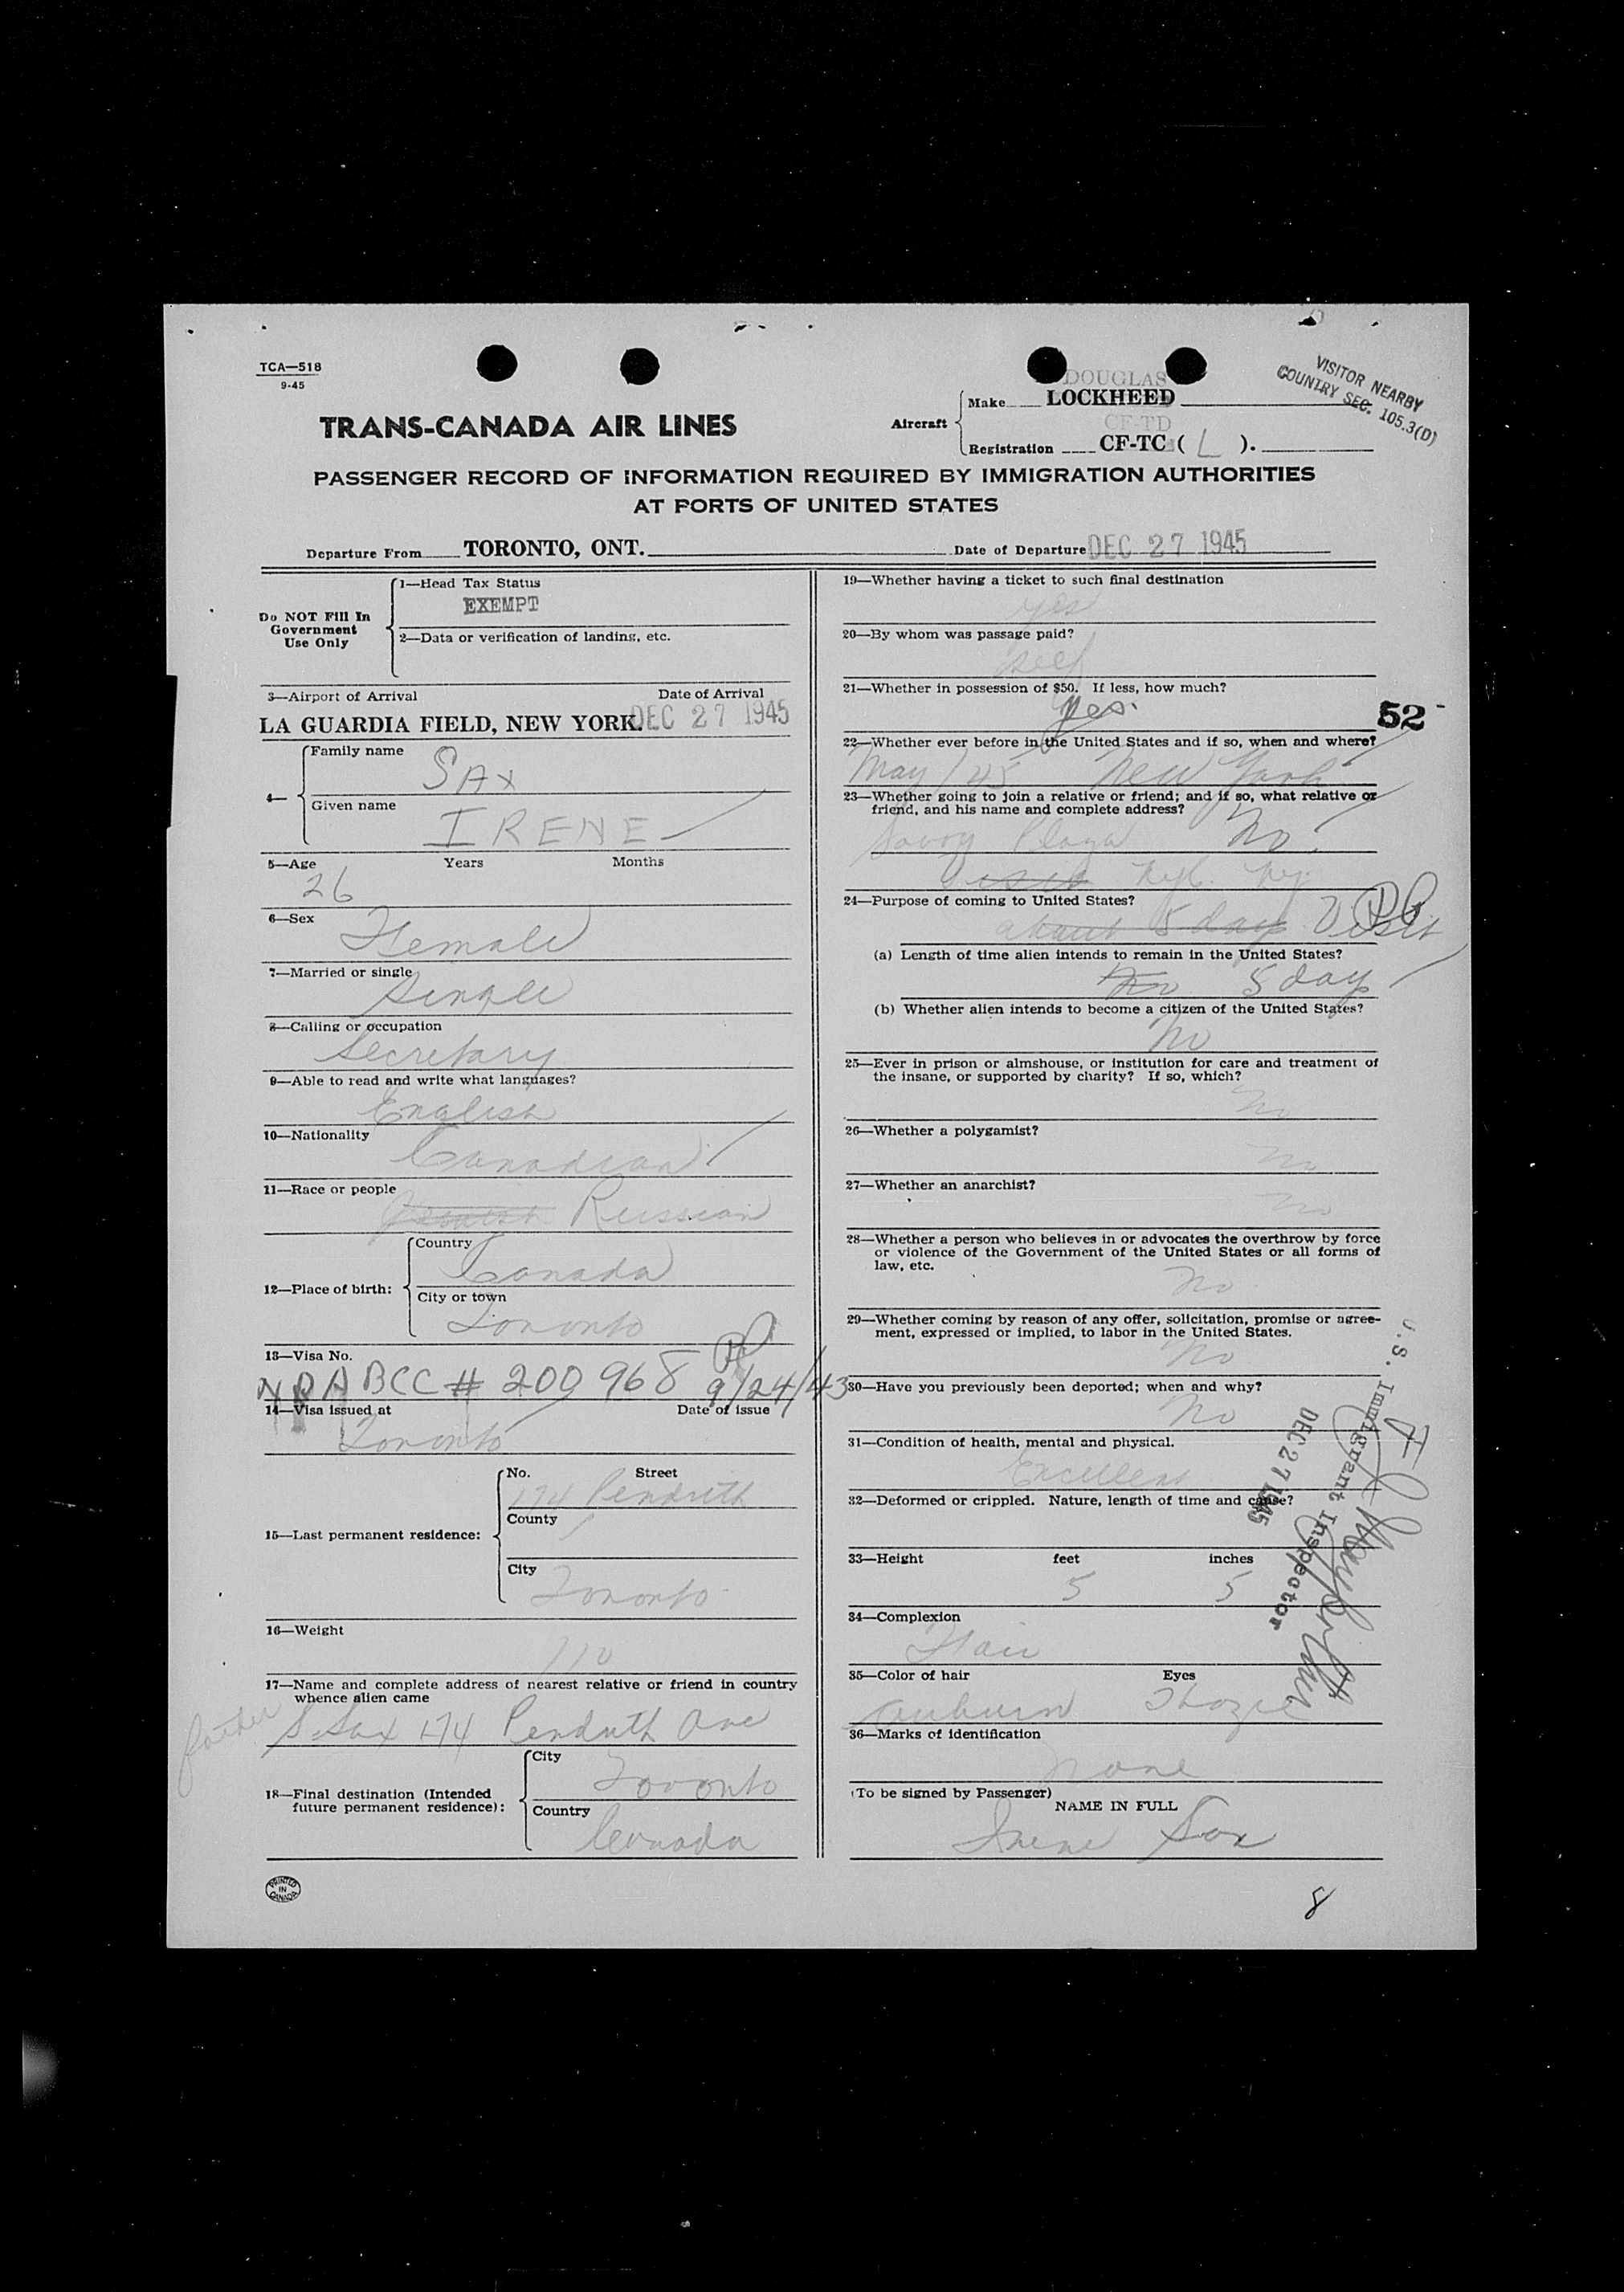 TCA—518
9-45
TRANS-CANADA AIR LINES
Aircraft
DOUGLAS
Make LOCKHEED
CF-TD
Registration CF-TC ( L ).
VISITOR NEARBY
COUNTRY SEC. 105.3(D)
PASSENGER RECORD OF INFORMATION REQUIRED BY IMMIGRATION AUTHORITIES
AT PORTS OF UNITED STATES
Departure From TORONTO, ONT. Date of Departure DEC 27 1945
Do NOT Fill In
Government
Use Only
1—Head Tax Status
EXEMPT
2—Data or verification of landing, etc.
3—Airport of Arrival Date of Arrival
LA GUARDIA FIELD, NEW YORK. DEC 27 1945
4—
Family name
SAX
Given name
IRENE
5—Age Years Months
26
6—Sex
Female
7—Married or single
Single
8—Calling or occupation
Secretary
9—Able to read and write what languages?
English
10—Nationality
Canadian
11—Race or people
Russian
12—Place of birth:
Country
Canada
City or town
Toronto
13—Visa No.
ABCC # 200968 9/24/43
14—Visa issued at Date of issue
Toronto
15—Last permanent residence:
No. Street
174 Pendrith
County
City
Toronto
16—Weight
110
17—Name and complete address of nearest relative or friend in country
whence alien came
father S. Sax 174 Pendrith Ave
18—Final destination (Intended
future permanent residence):
City
Toronto
Country
Canada
PRINTED
IN
CANADA
19—Whether having a ticket to such final destination
yes
20—By whom was passage paid?
self
21—Whether in possession of $50. If less, how much?
Yes.
52
22—Whether ever before in the United States and if so, when and where?
May / 45 New York
23—Whether going to join a relative or friend; and if so, what relative or
friend, and his name and complete address?
Savoy Plaza No.
Visit NYC. NY.
24—Purpose of coming to United States?
about 5 days Visit
(a) Length of time alien intends to remain in the United States?
No 5 days
(b) Whether alien intends to become a citizen of the United States?
No
25—Ever in prison or almshouse, or institution for care and treatment of
the insane, or supported by charity? If so, which?
No
26—Whether a polygamist?
No
27—Whether an anarchist?
No
28—Whether a person who believes in or advocates the overthrow by force
or violence of the Government of the United States or all forms of
law, etc.
No
29—Whether coming by reason of any offer, solicitation, promise or agree-
ment, expressed or implied, to labor in the United States.
No
30—Have you previously been deported; when and why?
No
31—Condition of health, mental and physical.
Excellent
32—Deformed or crippled. Nature, length of time and cause?
33—Height feet inches
5 5
34—Complexion
Fair
35—Color of hair Eyes
auburn Hazel
36—Marks of identification
None
(To be signed by Passenger)
NAME IN FULL
Irene Sax
U.S. Immigrant Inspector
DEC 27 1945
8